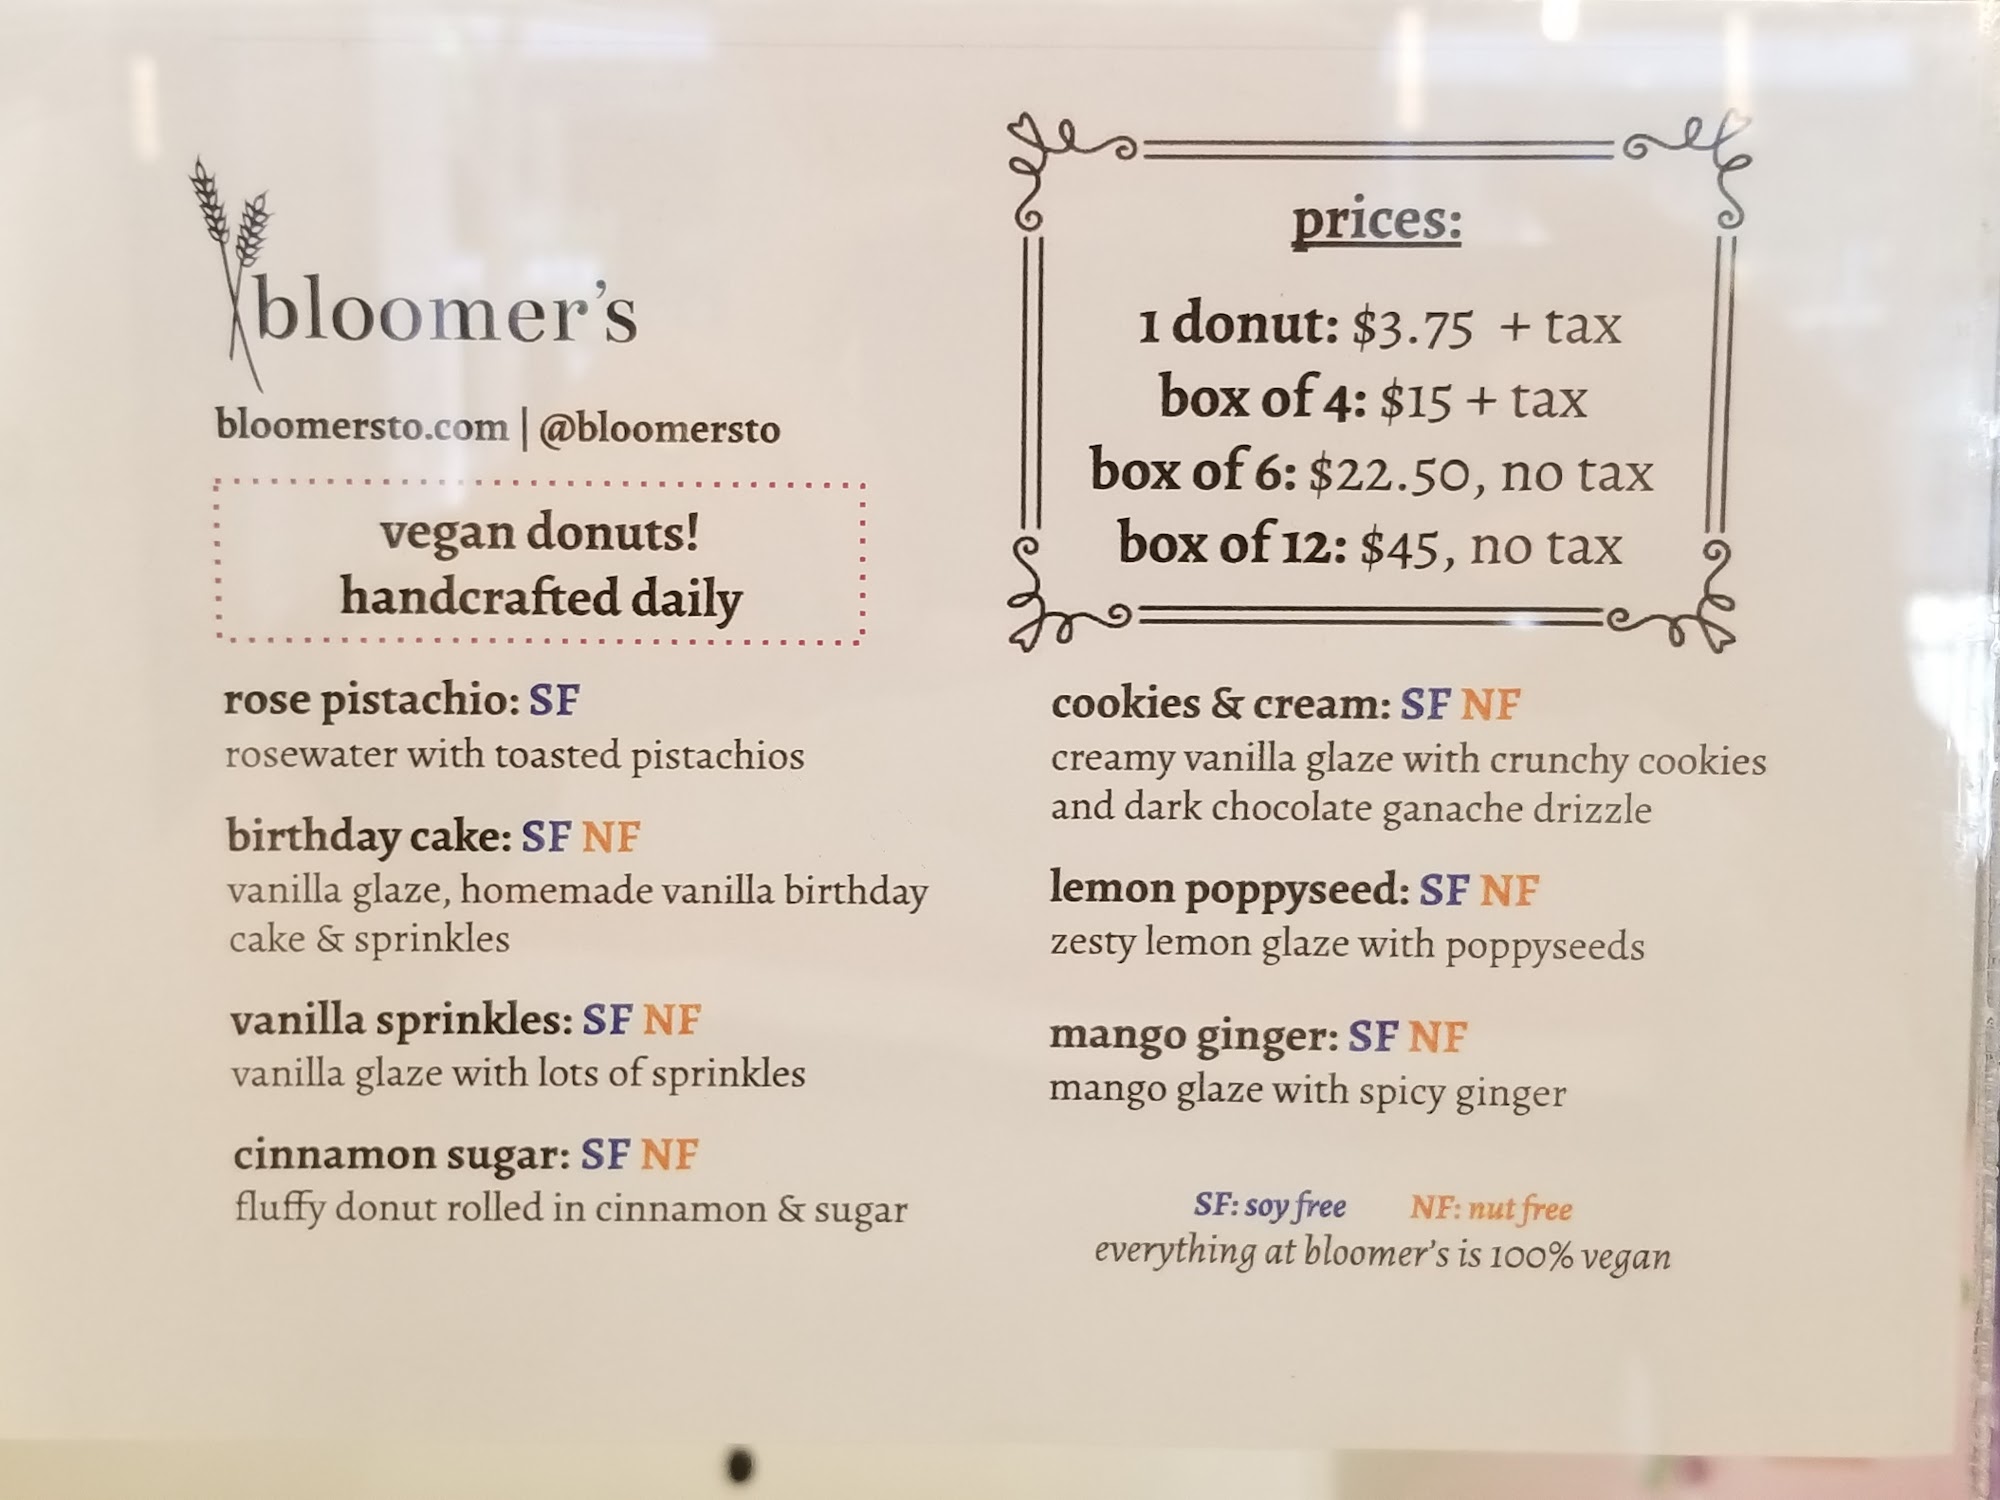 bloomer's
bloomersto.com | @bloomersto
vegan donuts!
handcrafted daily
prices:
1 donut: $3.75 + tax
box of 4: $15 + tax
box of 6: $22.50, no tax
box of 12: $45, no tax
rose pistachio: SF
rosewater with toasted pistachios
birthday cake: SF NF
vanilla glaze, homemade vanilla birthday
cake & sprinkles
vanilla sprinkles: SF NF
vanilla glaze with lots of sprinkles
cinnamon sugar: SF NF
fluffy donut rolled in cinnamon & sugar
cookies & cream: SF NF
creamy vanilla glaze with crunchy cookies
and dark chocolate ganache drizzle
lemon poppyseed: SF NF
zesty lemon glaze with poppyseeds
mango ginger: SF NF
mango glaze with spicy ginger
SF: soy free NF: nut free
everything at bloomer's is 100% vegan